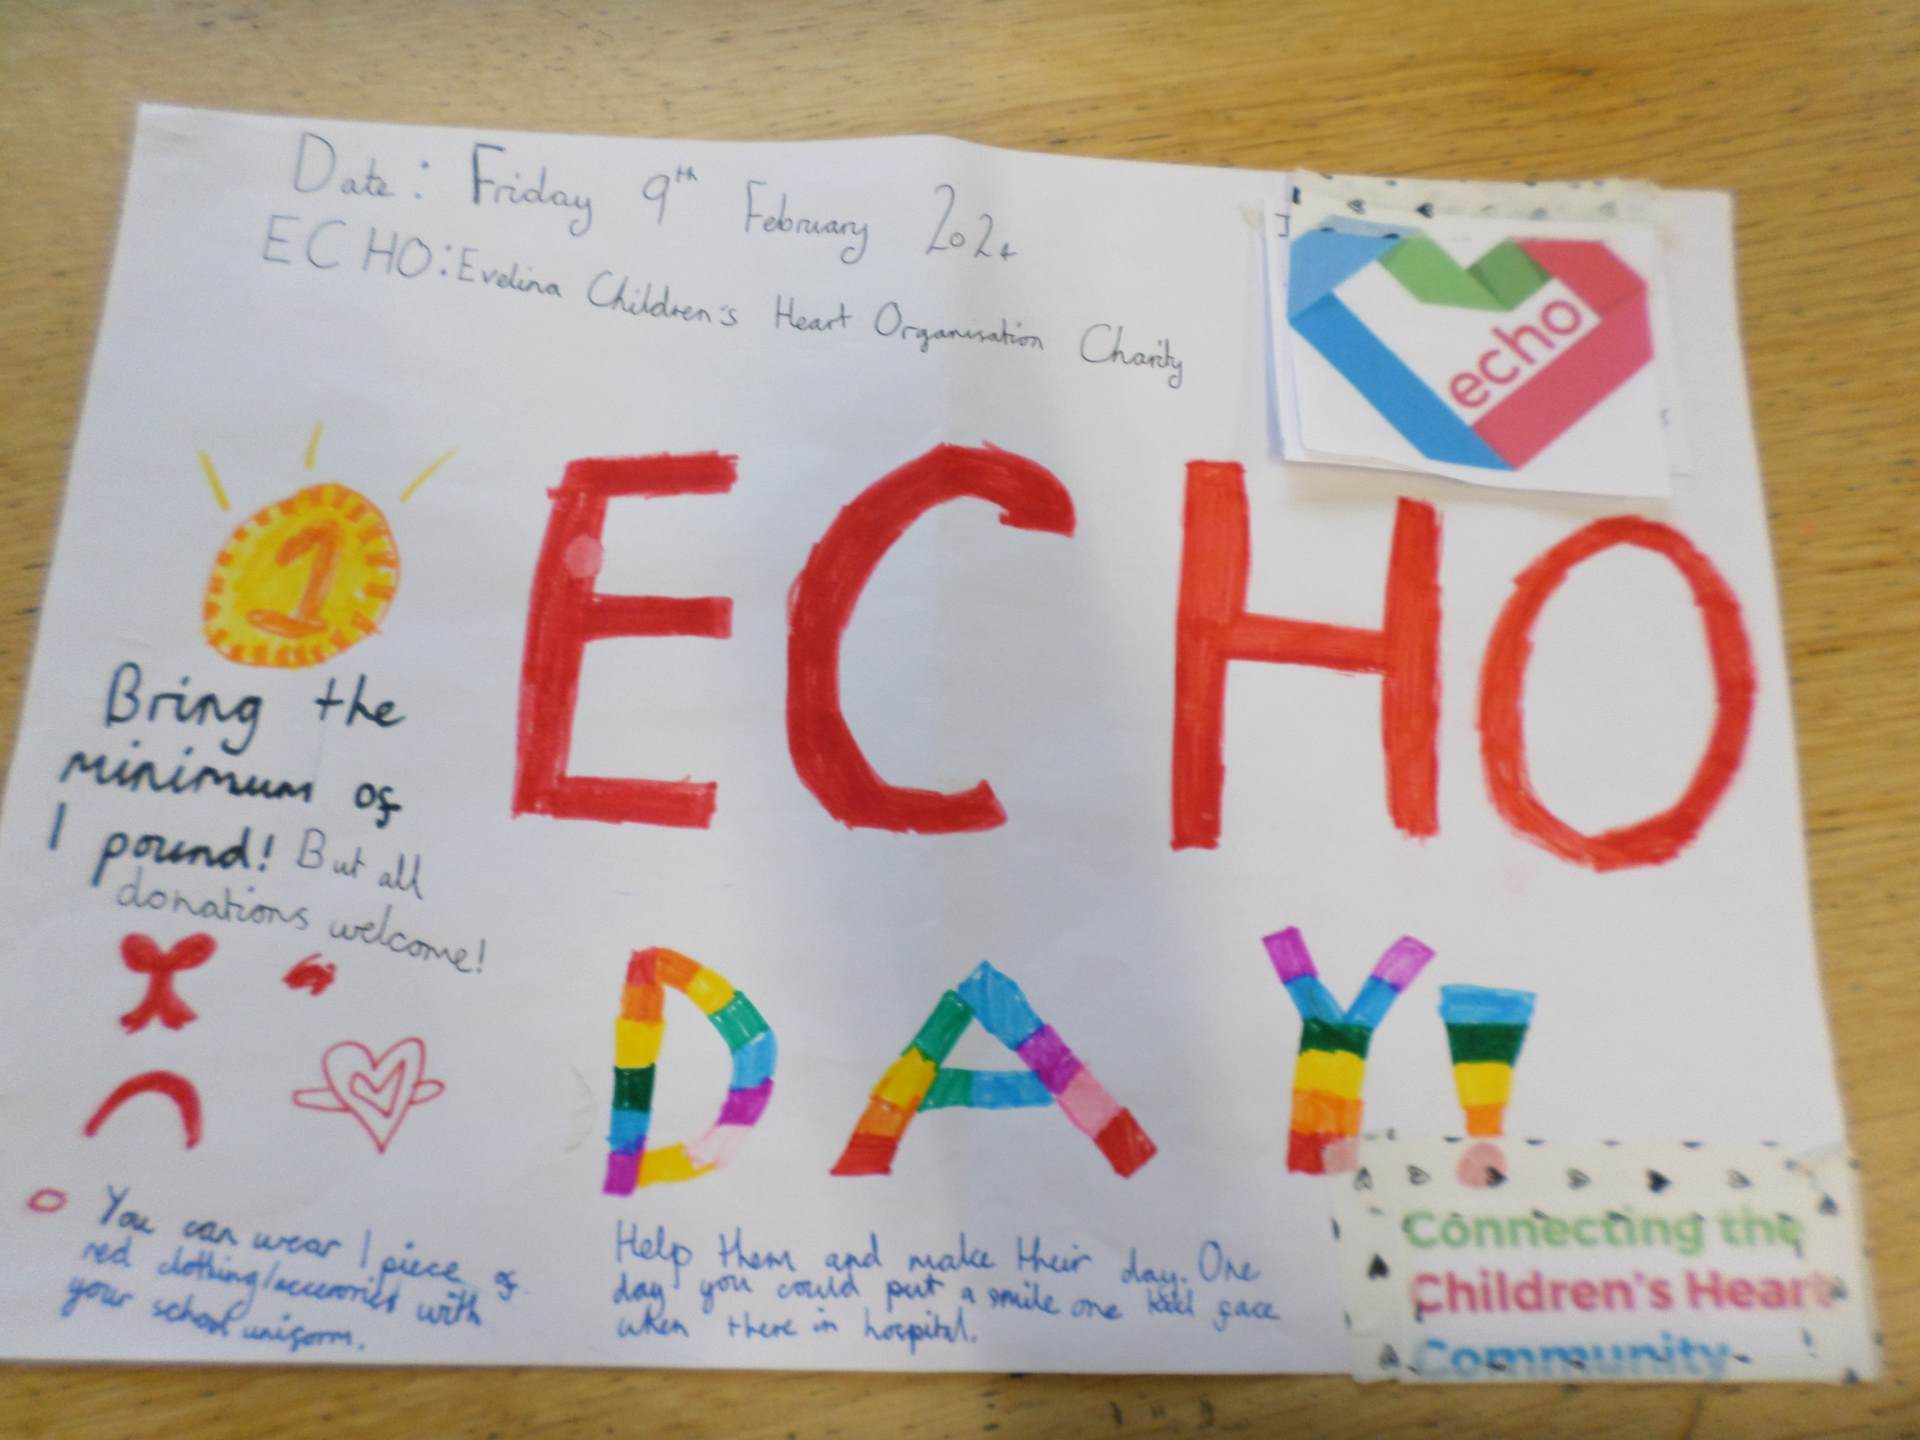 Date: Friday 9th February 2024
ECHO: Evelina Children's Heart Organisation Charity
echo
1
ECHO
Bring the
minimum of
1 pound! But all
donations welcome!
DAY!
You can wear 1 piece of
red clothing/accesories with
your school uniform.
Help them and make their day. One
day you could put a smile one face
when there in hospital.
Connecting the
Children's Heart
Community